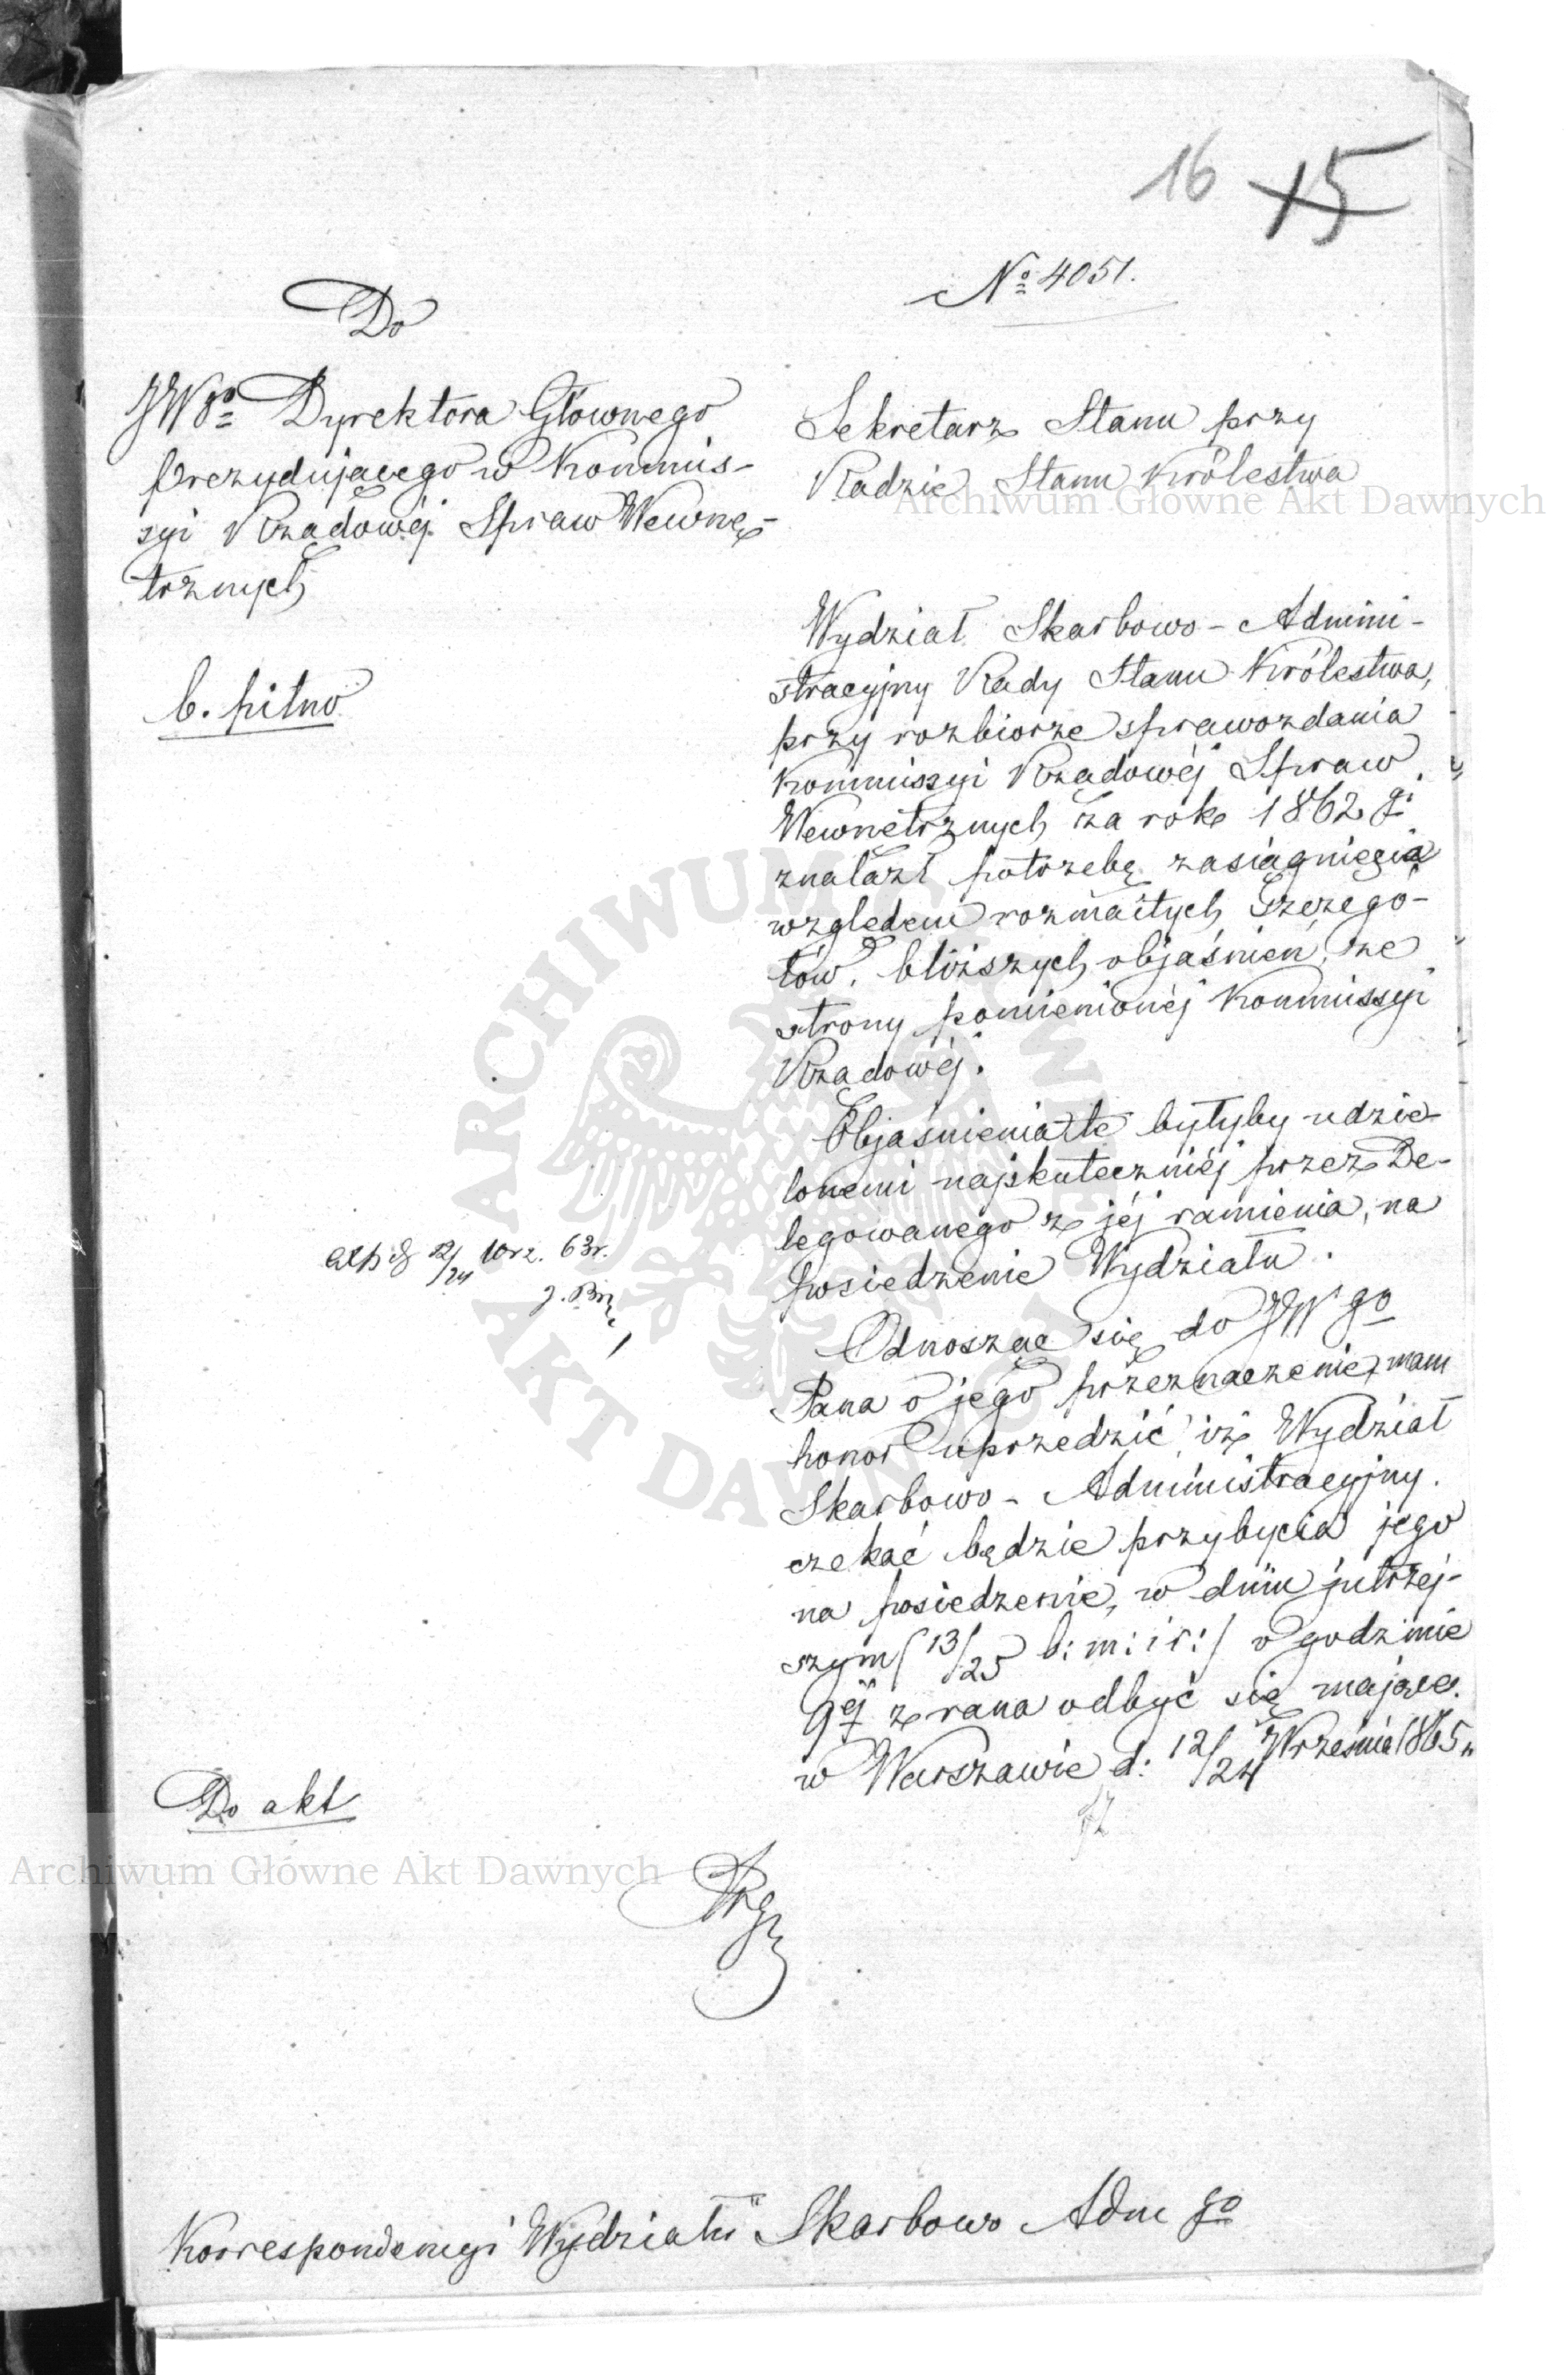 16 15
№ 4051.
Do
JWgo Dyrektora Głównego
Prezydującego w Kommis-
syi Rządowéj Spraw Wewnę-
trznych
b. pilno
Sekretarz Stanu przy
Radzie Stanu Królestwa
Wydział Skarbowo-Admini-
stracyjny Rady Stanu Królestwa,
przy rozbiorze sprawozdania
Kommissyi Rządowéj Spraw
Wewnętrznych za rok 1862 g:
znalazł potrzebę zasiągnięcia
względem rozmaitych szczegó-
łów, bliższych objaśnień, ze
strony pomienionéj Kommissyi
Rządowéj.
Objaśnienia te byłyby udzie-
lonemi najskuteczniéj przez De-
legowanego z jéj ramienia, na
posiedzenie Wydziału.
Odnosząc się do JW go
Pana o jego przeznaczenie, mam
honor uprzedzić, iż Wydział
Skarbowo-Administracyjny
czekać będzie przybycia jego
na posiedzenie, w dniu jutrzej-
szym /13/25 b: m: i r:/ o godzinie
9éj z rana odbyć się mające.
w Warszawie d: 12/24 Września 1863 r.
12/24 Wrz. 63 r.
Do akt
Korrespondencyi Wydziału Skarbowo Adm go
Archiwum Główne Akt Dawnych
Archiwum Główne Akt Dawnych
ARCHIWUM GŁÓWNE
AKT DAWNYCH